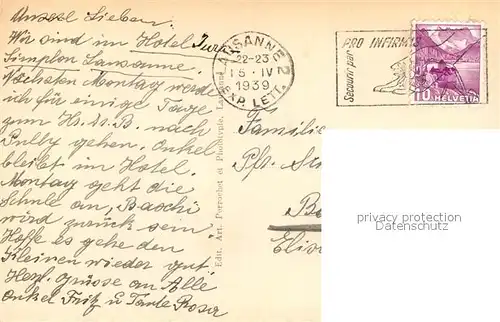 Unsere Lieben.
Wir sind im Hotel
Simplon Lausanne.
Nächsten Montag werde
ich für einige Tage
zum Hr. v. B. nach
Pully gehen. Onkel
bleibt im Hotel.
Montag geht die
Schule an,
wird zurück sein.
Hoffe es gehe den
Kleinen wieder gut.
Herzl. Grüsse an Alle
Onkel Fritz u Tante Rosa
Edit. Art. Perrochet et Phototypie, Lausanne
LAUSANNE 2
22-23
15. IV
1939
EXP. LETT.
PRO INFIRMIS
Secourir par
10 HELVETIA
Familie
Pfr.
privacy protection
www.oldthing.de